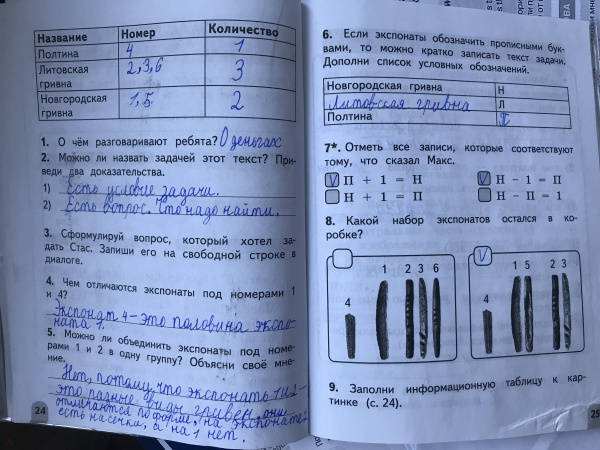 Название Номер Количество
Полтина 4 1
Литовская гривна 2,3,6 3
Новгородская гривна 1,5. 2
1. О чём разговаривают ребята? О деньгах
2. Можно ли назвать задачей этот текст? При-
веди два доказательства.
1) Есть условие задачи.
2) Есть вопрос. Что надо найти.
3. Сформулируй вопрос, который хотел за-
дать Стас. Запиши его на свободной строке в
диалоге.
4. Чем отличаются экспонаты под номерами 1
и 4?
Экспонат 4 – это половина экспо-
ната 1.
5. Можно ли объединить экспонаты под номе-
рами 1 и 2 в одну группу? Объясни своё мне-
ние.
Нет, потому, что экспонаты 1 и 2 –
это разные виды гривен, они
отличаются по форме, на экспонате 2
есть насечки, а на 1 нет.
24
6. Если экспонаты обозначить прописными бук-
вами, то можно кратко записать текст задачи.
Дополни список условных обозначений.
Новгородская гривна Н
Литовская гривна Л
Полтина П
7*. Отметь все записи, которые соответствуют
тому, что сказал Макс.
V П + 1 = Н V Н – 1 = П
Н + 1 = П Н – П = 1
8. Какой набор экспонатов остался в ко-
робке?
V
1 2 3 6 1 5 2
4 4
9. Заполни информационную таблицу к кар-
тинке (с. 24).
25